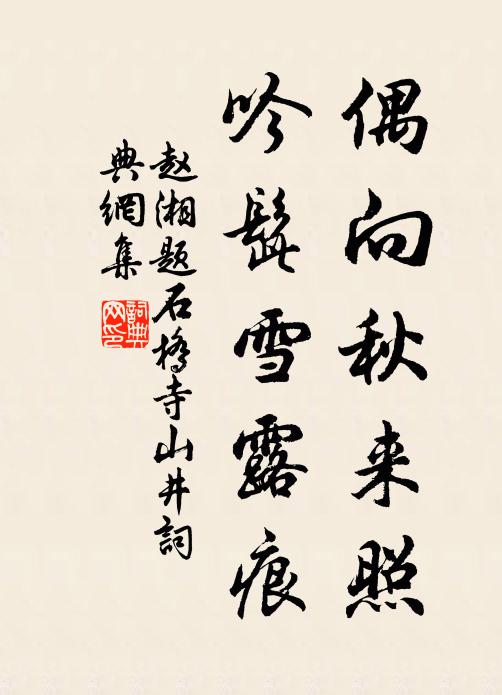 偶向秋来照
吟髭雪露痕
赵湘题石桥寺山井詞
典網集
詞典网印